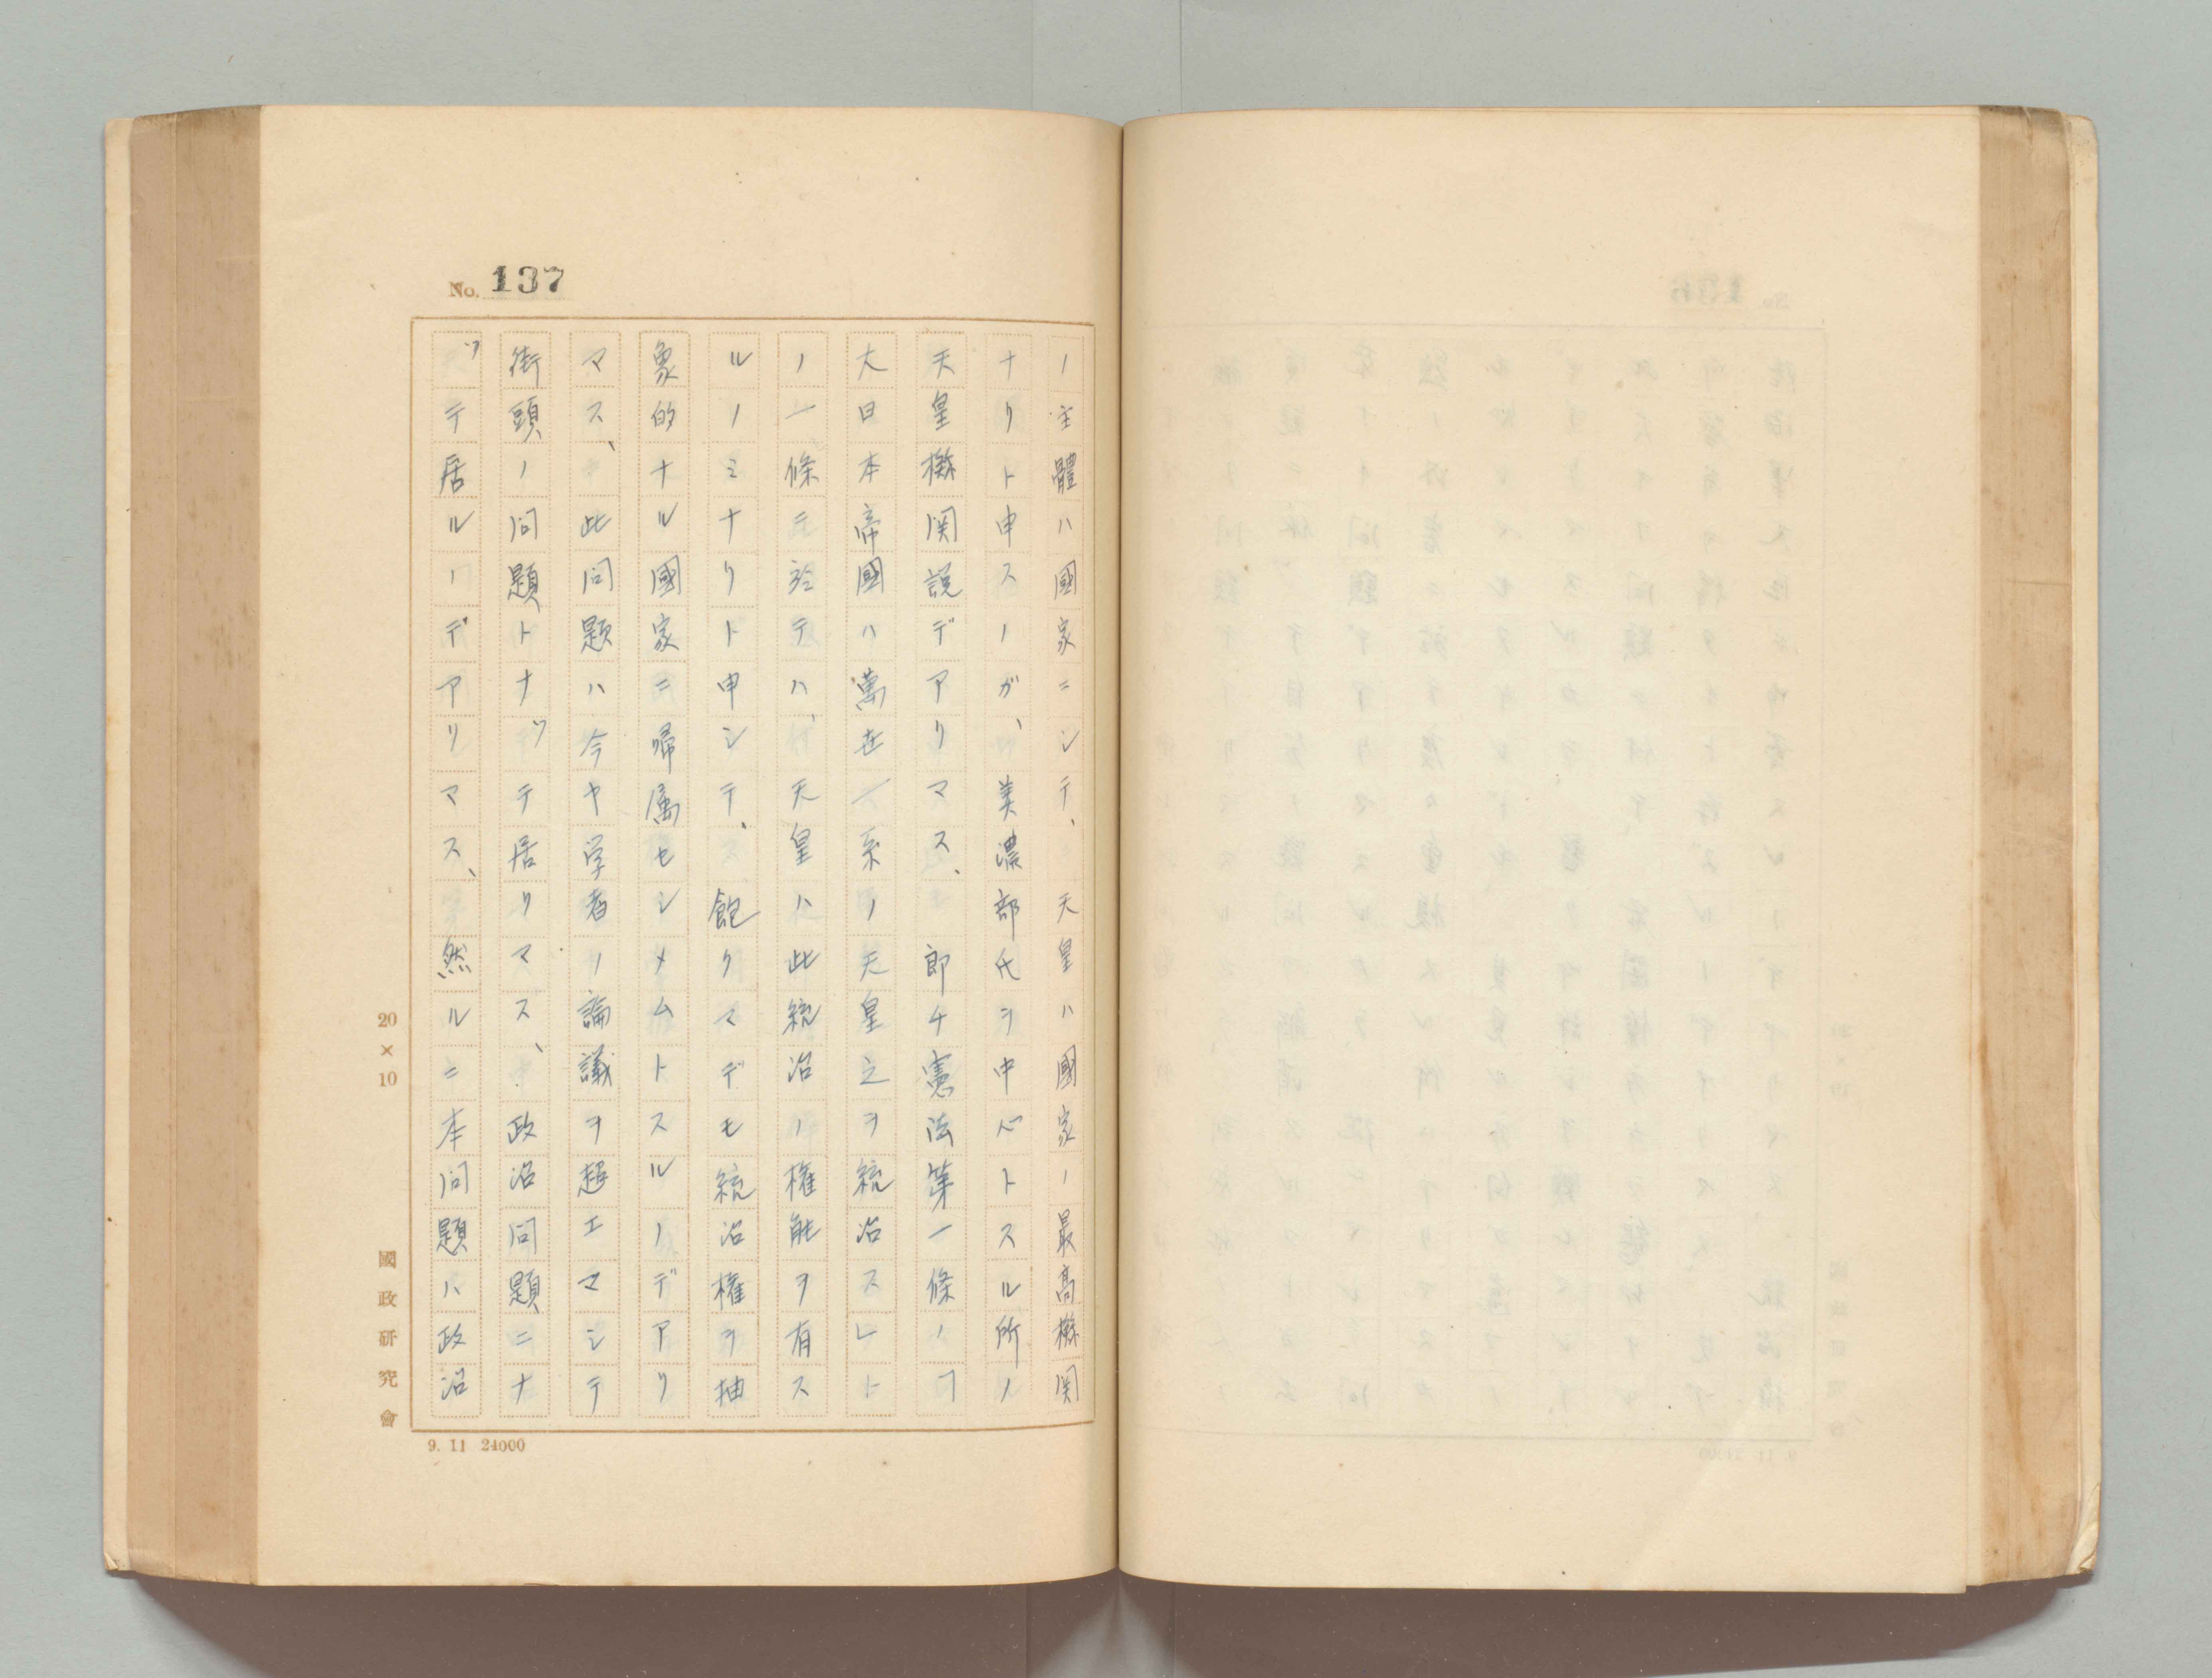 No. 137
ノ主體ハ國家ニシテ、天皇ハ國家ノ最高機関
ナリト申スノガ、美濃部氏ヲ中心トスル所ノ
天皇機関説デアリマス、郎チ憲法第一條ノ「
大日本帝國ハ萬世一系ノ天皇之ヲ統治スレト
ノ一條ニ於テハ、天皇ハ此統治ノ権能ヲ有ス
ルノミナリト申シテ、飽クマデモ統治権ヲ抽
象的ナル國家ニ帰属セシメムトスルノデアリ
マス、此問題ハ今ヤ学者ノ論議ヲ超エマシテ
街頭ノ問題トナッテ居リマス、政治問題ニナ
ッテ居ルノデアリマス、然ルニ本問題ハ政治
20×10
國政研究會
9. 11 24000